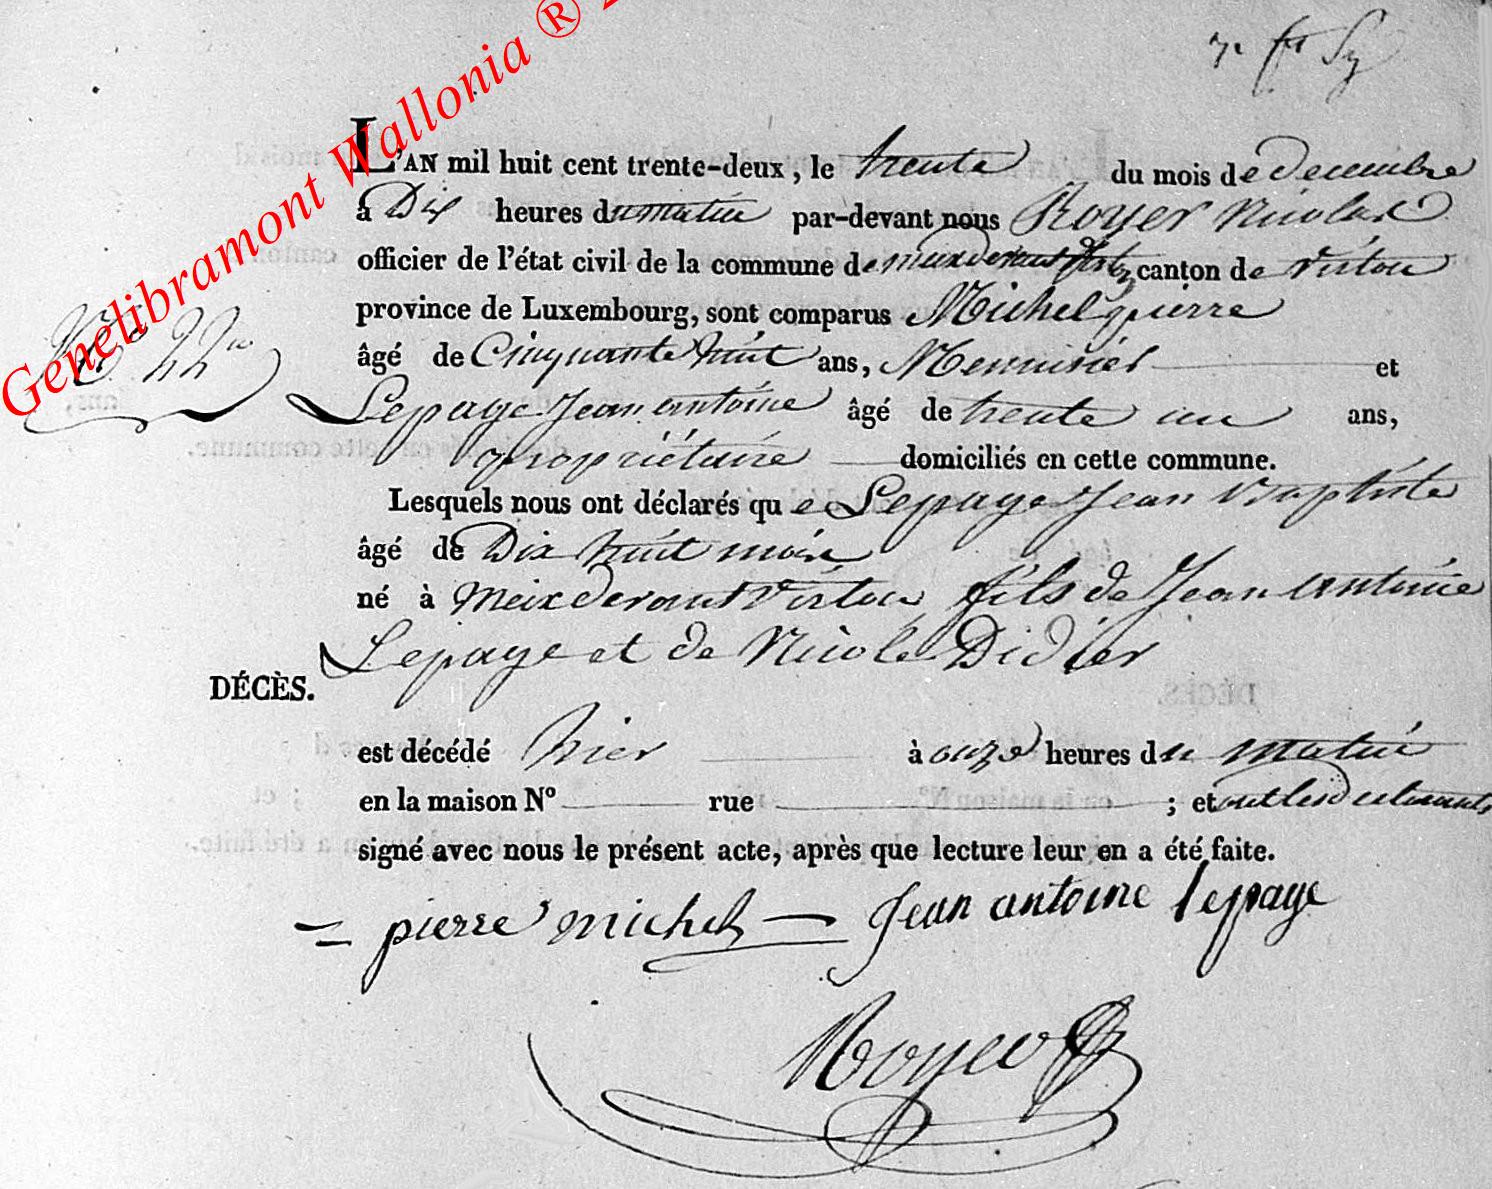 Genelibramont Wallonia ®
L'AN mil huit cent trente-deux, le trente du mois de decembre
à Dix heures du matin par-devant nous Royer Nicolas
officier de l'état civil de la commune de meixdevant Virton canton de virton
province de Luxembourg, sont comparus Michel pierre
âgé de Cinquante huit ans, Menuisier et
N° 22
Lepage Jean antoine âgé de trente un ans,
propriétaire domiciliés en cette commune.
Lesquels nous ont déclarés que Lepage Jean Baptiste
âgé de Dix huit mois
né à Meixdevant Virton fils de Jean antoine
Lepage et de Nicole Didier
DÉCÈS.
est décédé hier à onze heures du matin
en la maison N° rue ; et ont les déclarants
signé avec nous le présent acte, après que lecture leur en a été faite.
pierre michel Jean antoine lepage
Royer